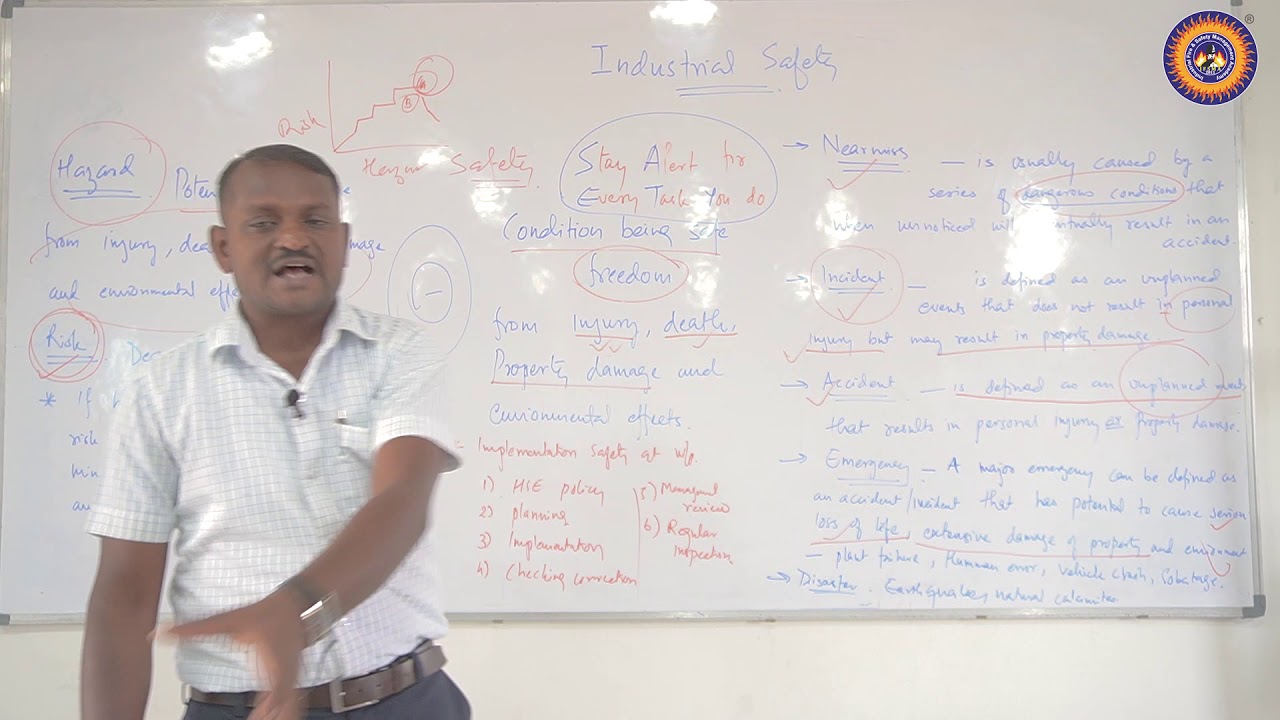 Industrial Safety
Industrial Fire & Safety Management Academy
®
Risk
A
B
Safety
Hazard
from injury, dea
and environmental effe
Risk
* if
risk
min
an
Stay Alert for
Every Task You do
Condition being safe
freedom
from injury, death,
Property damage and
Environmental effects.
Implementation Safety at w/p.
1) HSE policy
2) planning
3) Implementation
4) Checking correction
5)
review
6) Regular
inspection
→ Nearmiss — is usually caused by a
series of dangerous conditions that
when unnoticed will result in an
accident.
→ Incident — is defined as an unplanned
events that does not result in personal
injury but may result in property damage
→ Accident — is defined as an unplanned events
that results in personal injury or property damage.
→ Emergency — A major emergency can be defined as
an accident/incident that has potential to cause
loss of life, extensive damage of property and
— plant failure, Human error, vehicle crash, Sabotage.
→ Disaster. natural